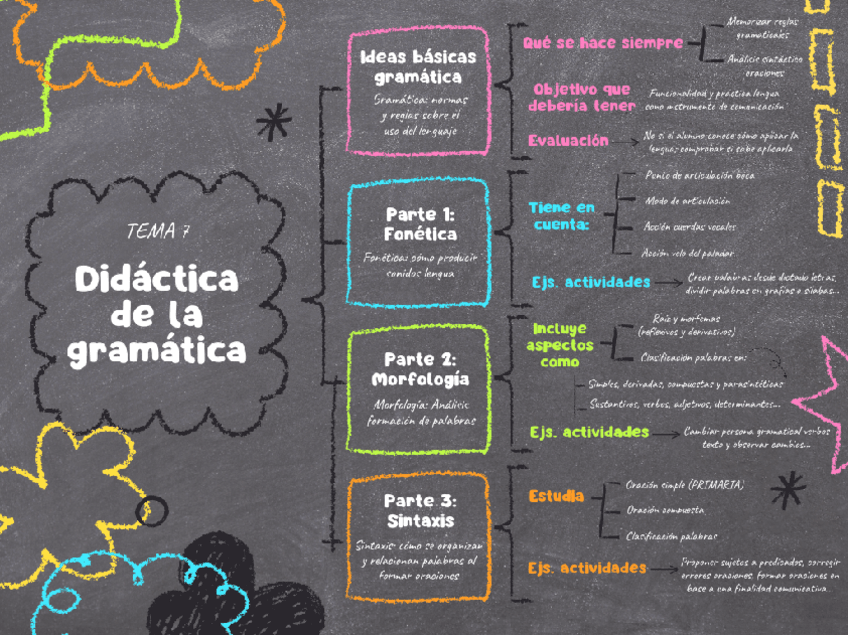 TEMA 7
Didáctica
de la
gramática
Ideas básicas
gramática
Gramática: normas
y reglas sobre el
uso del lenguaje
Qué se hace siempre
Memorizar reglas
gramaticales
Análisis sintáctico
oraciones
Objetivo que
debería tener
Funcionalidad y práctica lengua
como instrumento de comunicación
Evaluación
No si el alumno conoce cómo aplicar la
lengua; comprobar si sabe aplicarla
Parte 1:
Fonética
Fonética: cómo producir
sonidos lengua
Tiene en
cuenta:
Punto de articulación boca
Modo de articulación
Acción cuerdas vocales
Acción velo del paladar
Ejs. actividades
Crear palabras desde dictado letras,
dividir palabras en grafías o sílabas...
Parte 2:
Morfología
Morfología: Análisis
formación de palabras
Incluye
aspectos
como
Raíz y morfemas
(reflexivos y derivativos)
Clasificación palabras en:
Simples, derivadas, compuestas y parasintéticas
Sustantivos, verbos, adjetivos, determinantes...
Ejs. actividades
Cambiar persona gramatical verbos
texto y observar cambios...
Parte 3:
Sintaxis
Sintaxis: cómo se organizan
y relacionan palabras al
formar oraciones
Estudia
Oración simple (PRIMARIA)
Oración compuesta
Clasificación palabras
Ejs. actividades
Proponer sujetos a predicados, corregir
errores oraciones, formar oraciones en
base a una finalidad comunicativa...